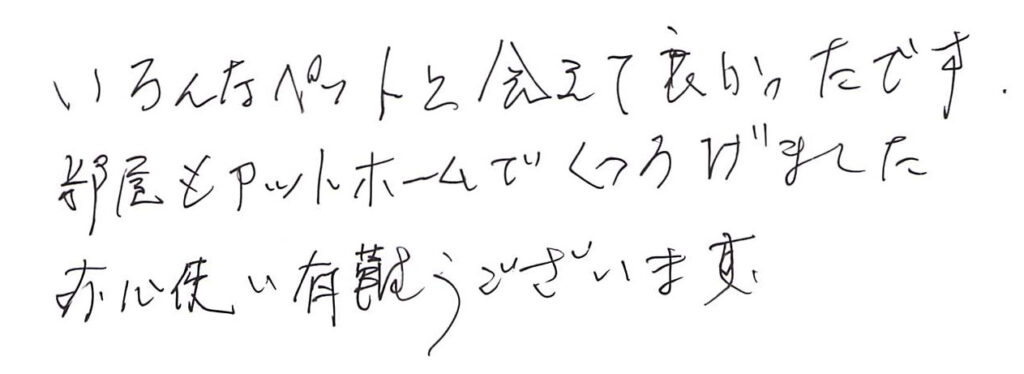 いろんなペットと会えて良かったです.
部屋もアットホームでくつろげました
お心使い有難うございます.